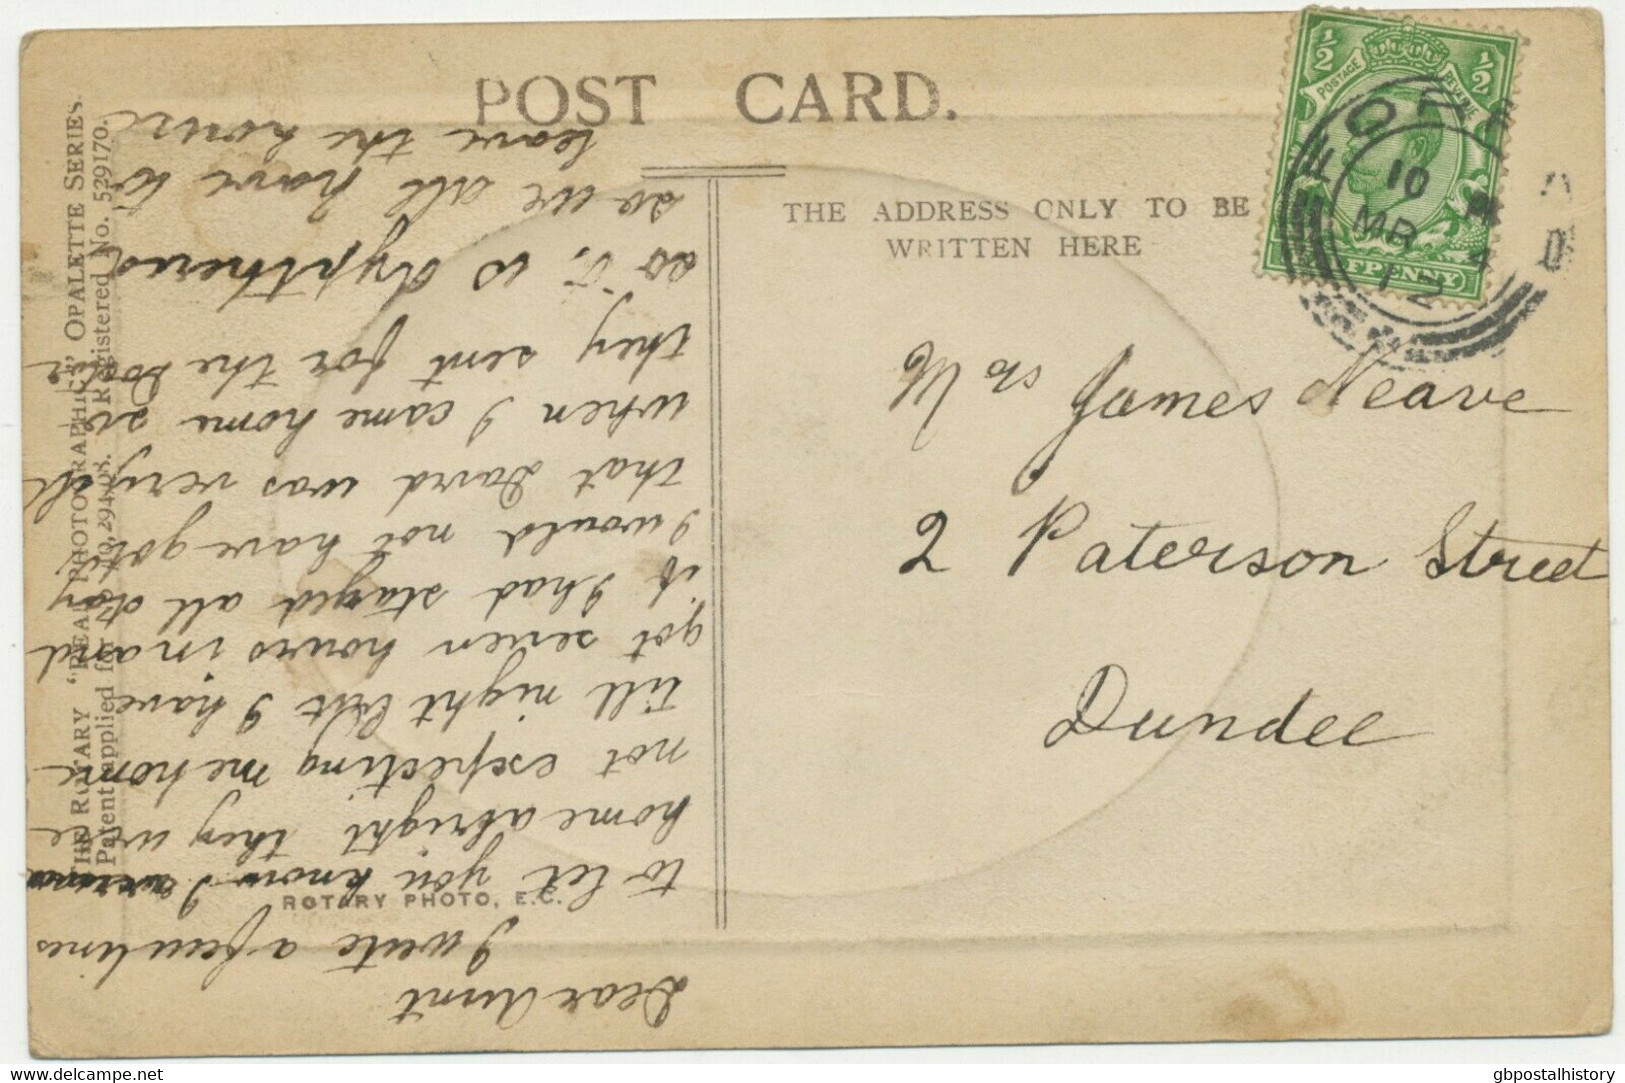 POST CARD.
THE ADDRESS ONLY TO BE
WRITTEN HERE
½ ½
POSTAGE REVENUE
HALFPENNY
10
MR
12
Mrs James Neave
2 Paterson Street
Dundee
Dear Aunt
I write a few lines
to let you know I
home alright they were
not expecting me home
till night but I have
got seven hours in and
if I had stayed all day
I would not have got it
that David was very ill
when I came home so
they sent for the Doctr
as it is dyptheria
so we all have to
leave the house
THE ROTARY "REAL PHOTOGRAPHIC" OPALETTE SERIES.
Patent applied for No. 29408. Registered No. 529170.
ROTARY PHOTO, E.C.
delcampe.net
gbpostalhistory